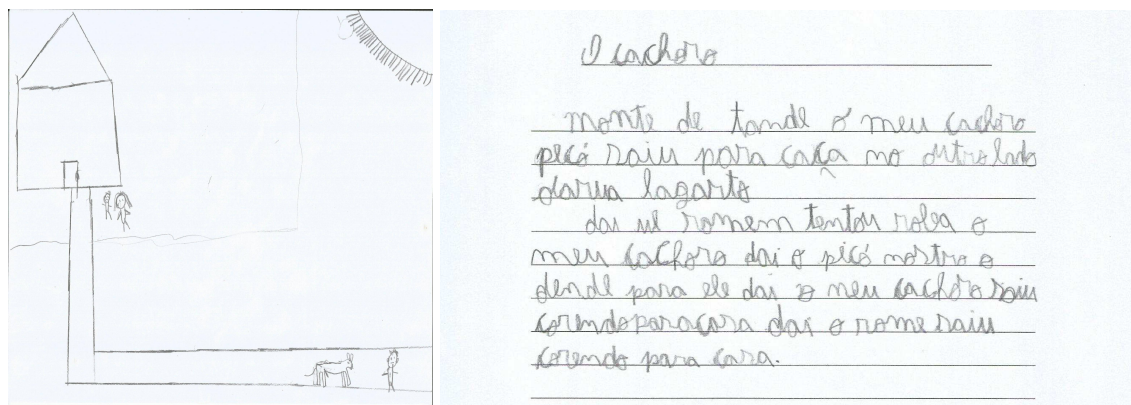 O cachoro
monte de tande o meu cachoro
picó saiu para caça no outro lado
darua lagarto
dai ul romem tentou roba o
meu cachoro dai o picó mostro o
dende para ele dai o meu cachoro saiu
corendoparacasa dai o rome saiu
corendo para casa.